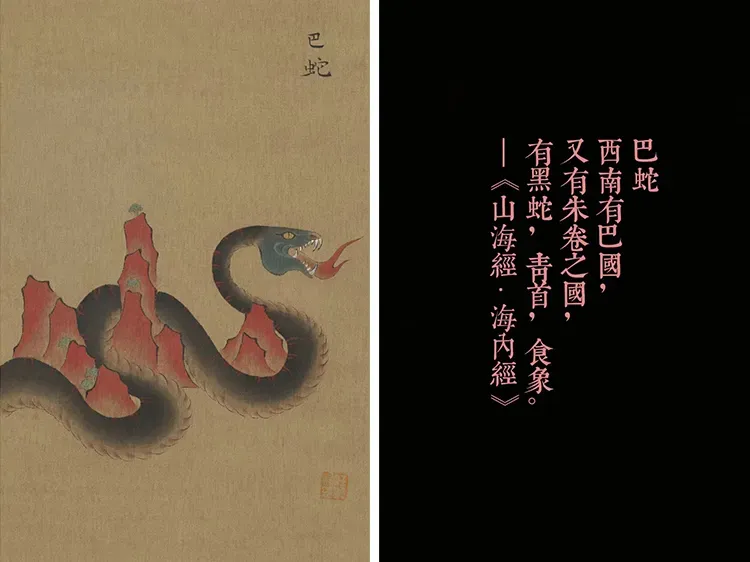 巴蛇
巴蛇
西南有巴國，
又有朱卷之國，
有黑蛇，靑首，食象。
—《山海經·海內經》